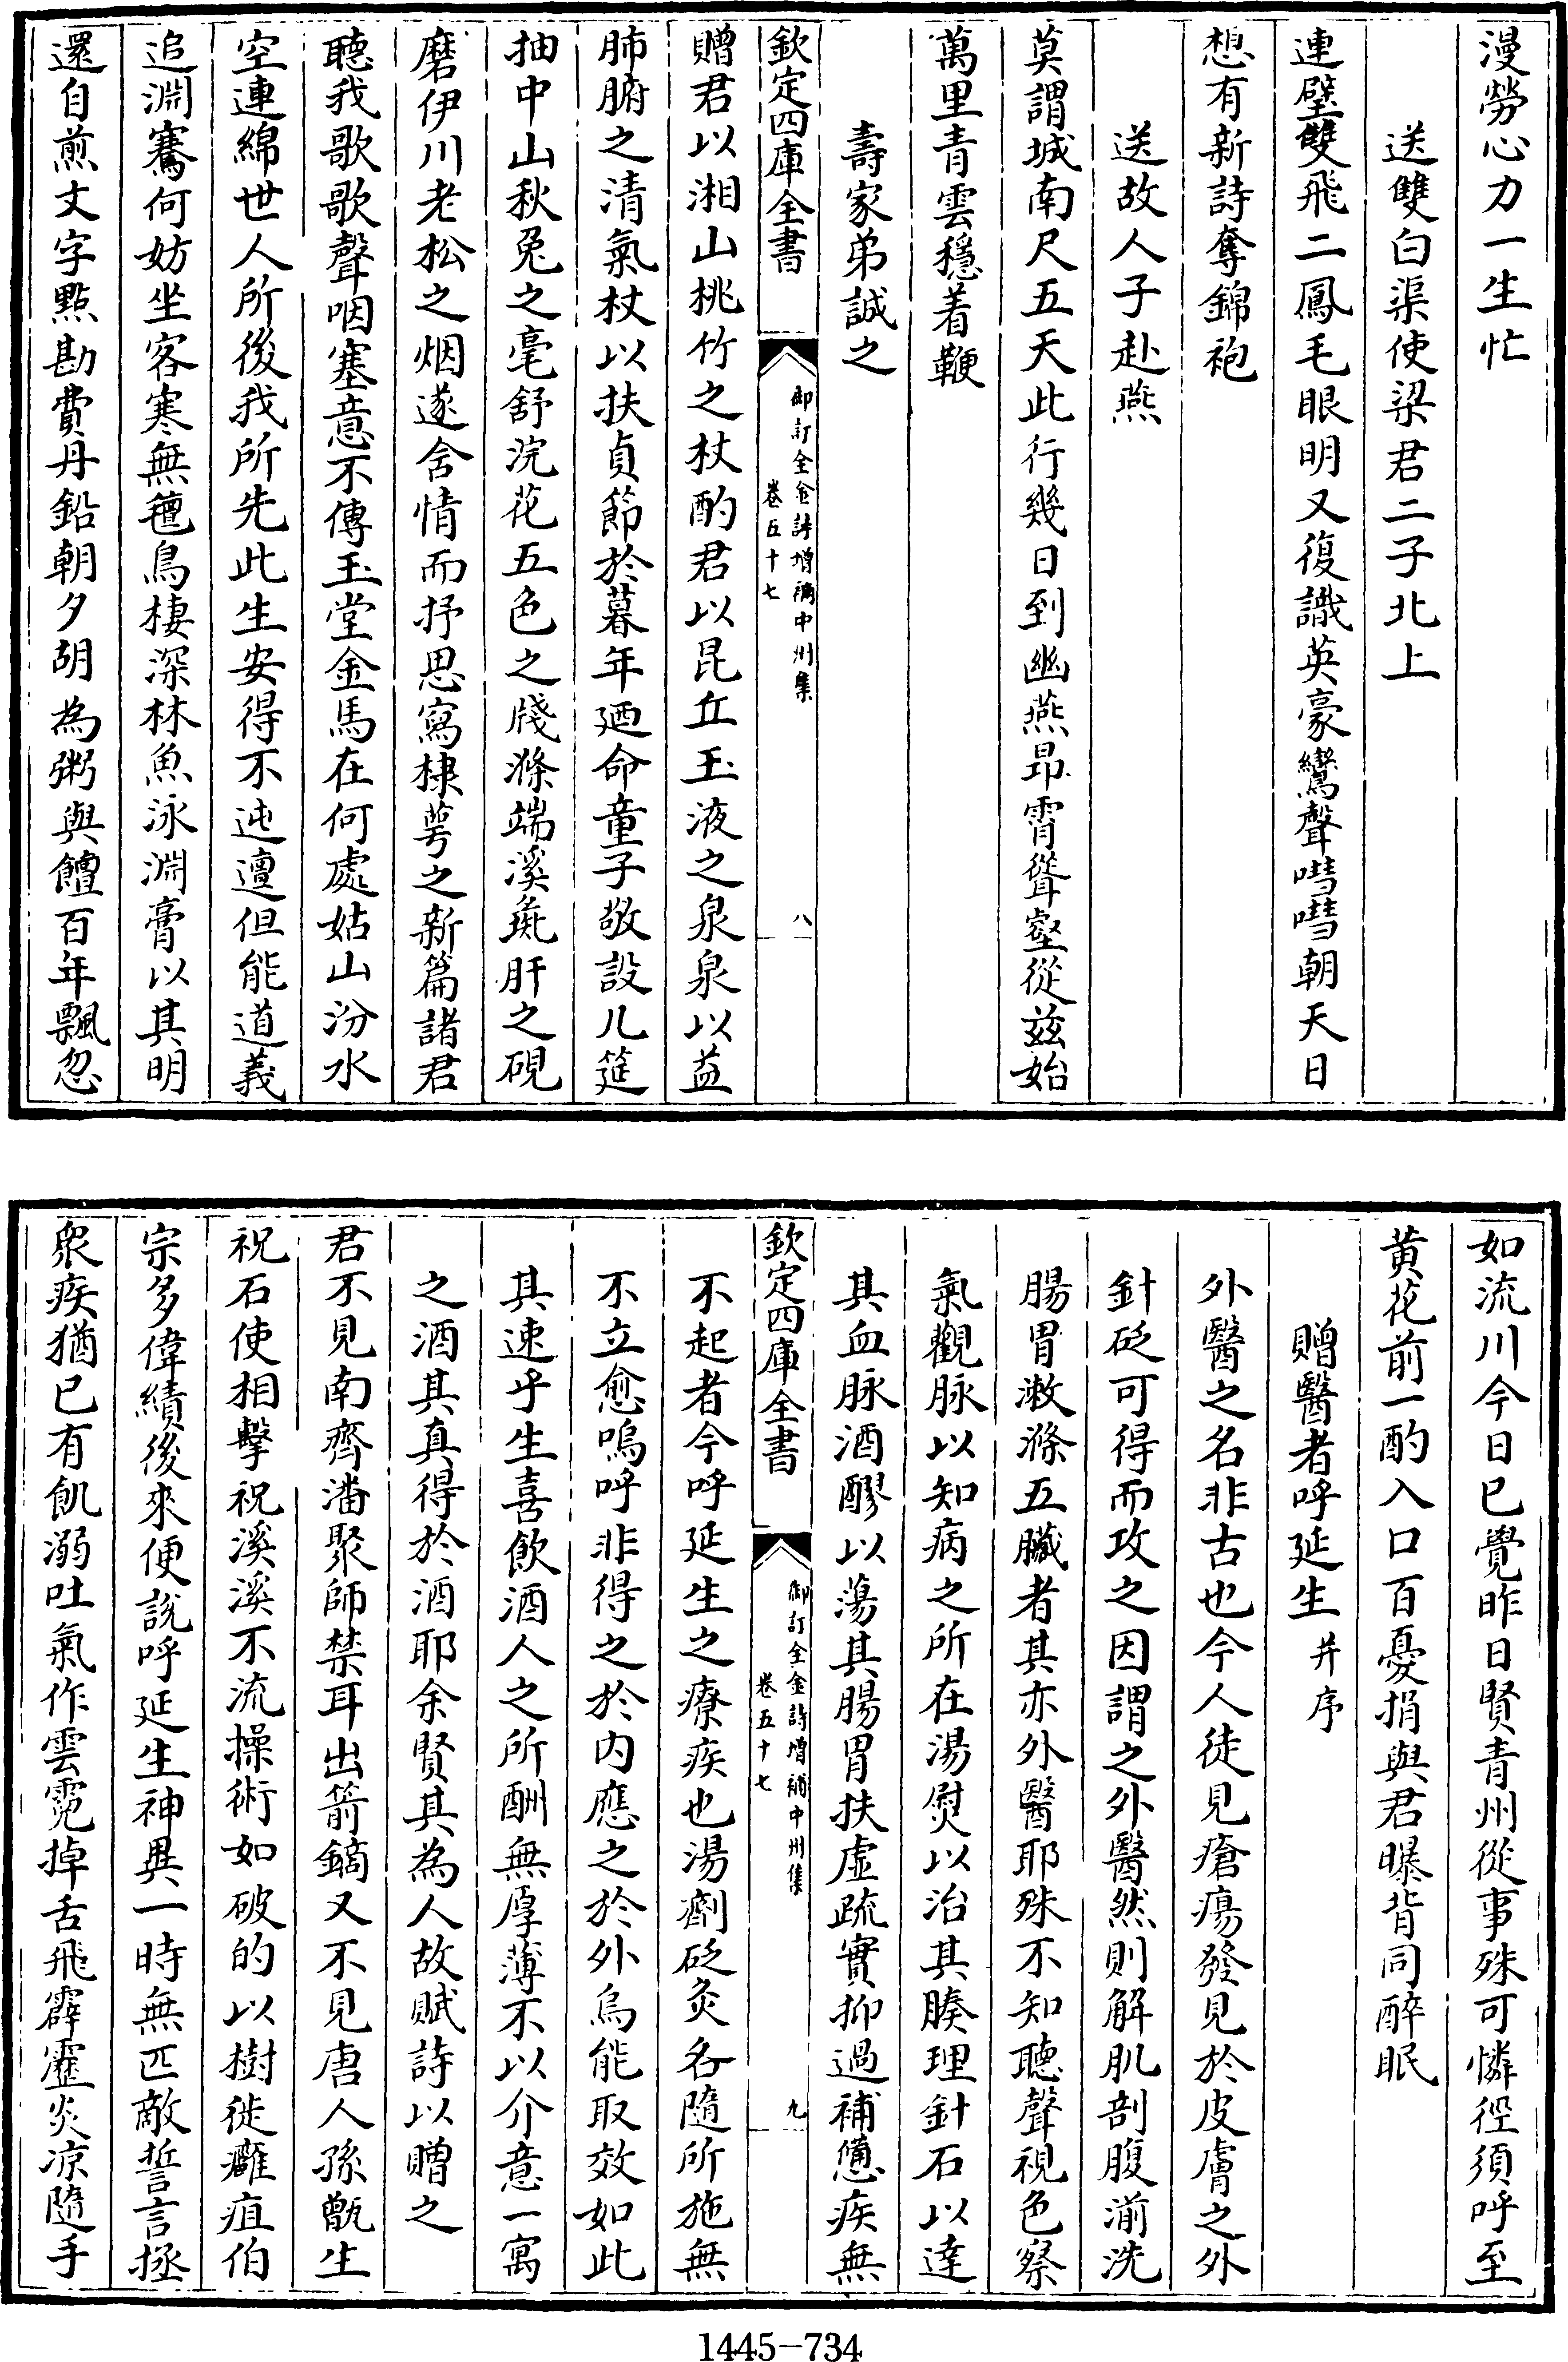 漫勞心力一生忙
送雙白渠使梁君二子北上
連璧雙飛二鳳毛眼明又復識英豪鸞聲嘒嘒朝天日
想有新詩奪錦袍
送故人子赴燕
莫謂城南尺五天此行幾日到幽燕昂霄聳壑從茲始
萬里青雲穩着鞭
壽家弟誠之
欽定四庫全書
御訂全金詩增補中州集
卷五十七
八
贈君以湘山桃竹之杖酌君以昆丘玉液之泉泉以益
肺腑之清氣杖以扶貞節於暮年廼命童子敬設几筵
抽中山秋兔之毫舒浣花五色之牋滌端溪彘肝之硯
磨伊川老松之烟遂含情而抒思寫棣萼之新篇諸君
聽我歌歌聲咽塞意不傳玉堂金馬在何處姑山汾水
空連綿世人所後我所先此生安得不迍邅但能道義
追淵騫何妨坐客寒無氊鳥棲深林魚泳淵膏以其明
還自煎文字點勘費丹鉛朝夕胡為粥與饘百年飄忽
如流川今日已覺昨日賢青州從事殊可憐徑須呼至
黄花前一酌入口百憂捐與君曝背同醉眠
贈醫者呼延生并序
外醫之名非古也今人徒見瘡瘍發見於皮膚之外
針砭可得而攻之因謂之外醫然則解肌剖腹湔洗
腸胃漱滌五臟者其亦外醫耶殊不知聽聲視色察
氣觀脉以知病之所在湯熨以治其腠理針石以達
其血脉酒醪以蕩其腸胃扶虛疏實抑過補憊疾無
欽定四庫全書
御訂全金詩增補中州集
卷五十七
九
不起者今呼延生之療疾也湯劑砭灸各隨所施無
不立愈嗚呼非得之於内應之於外烏能取效如此
其速乎生喜飲酒人之所酬無厚薄不以介意一寓
之酒其真得於酒耶余賢其為人故賦詩以贈之
君不見南齊潘聚師禁耳出箭鏑又不見唐人孫甑生
祝石使相擊祝溪溪不流操術如破的以樹徙癰疽伯
宗多偉績後來便說呼延生神異一時無匹敵誓言拯
衆疾猶已有飢溺吐氣作雲霓掉舌飛霹靂炎凉隨手
1445-734